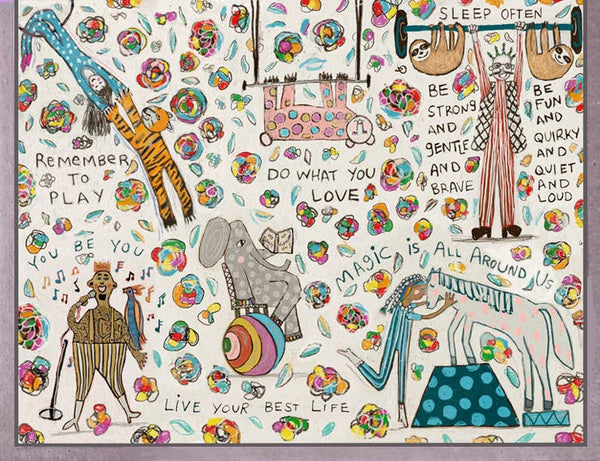 SLEEP OFTEN
BE
STRONG
AND
GENTLE
AND
BRAVE
BE
FUN
AND
QUIRKY
AND
QUIET
AND
LOUD
REMEMBER
TO
PLAY
DO WHAT YOU
LOVE
YOU BE YOU
MAGIC IS ALL AROUND US
LIVE YOUR BEST LIFE